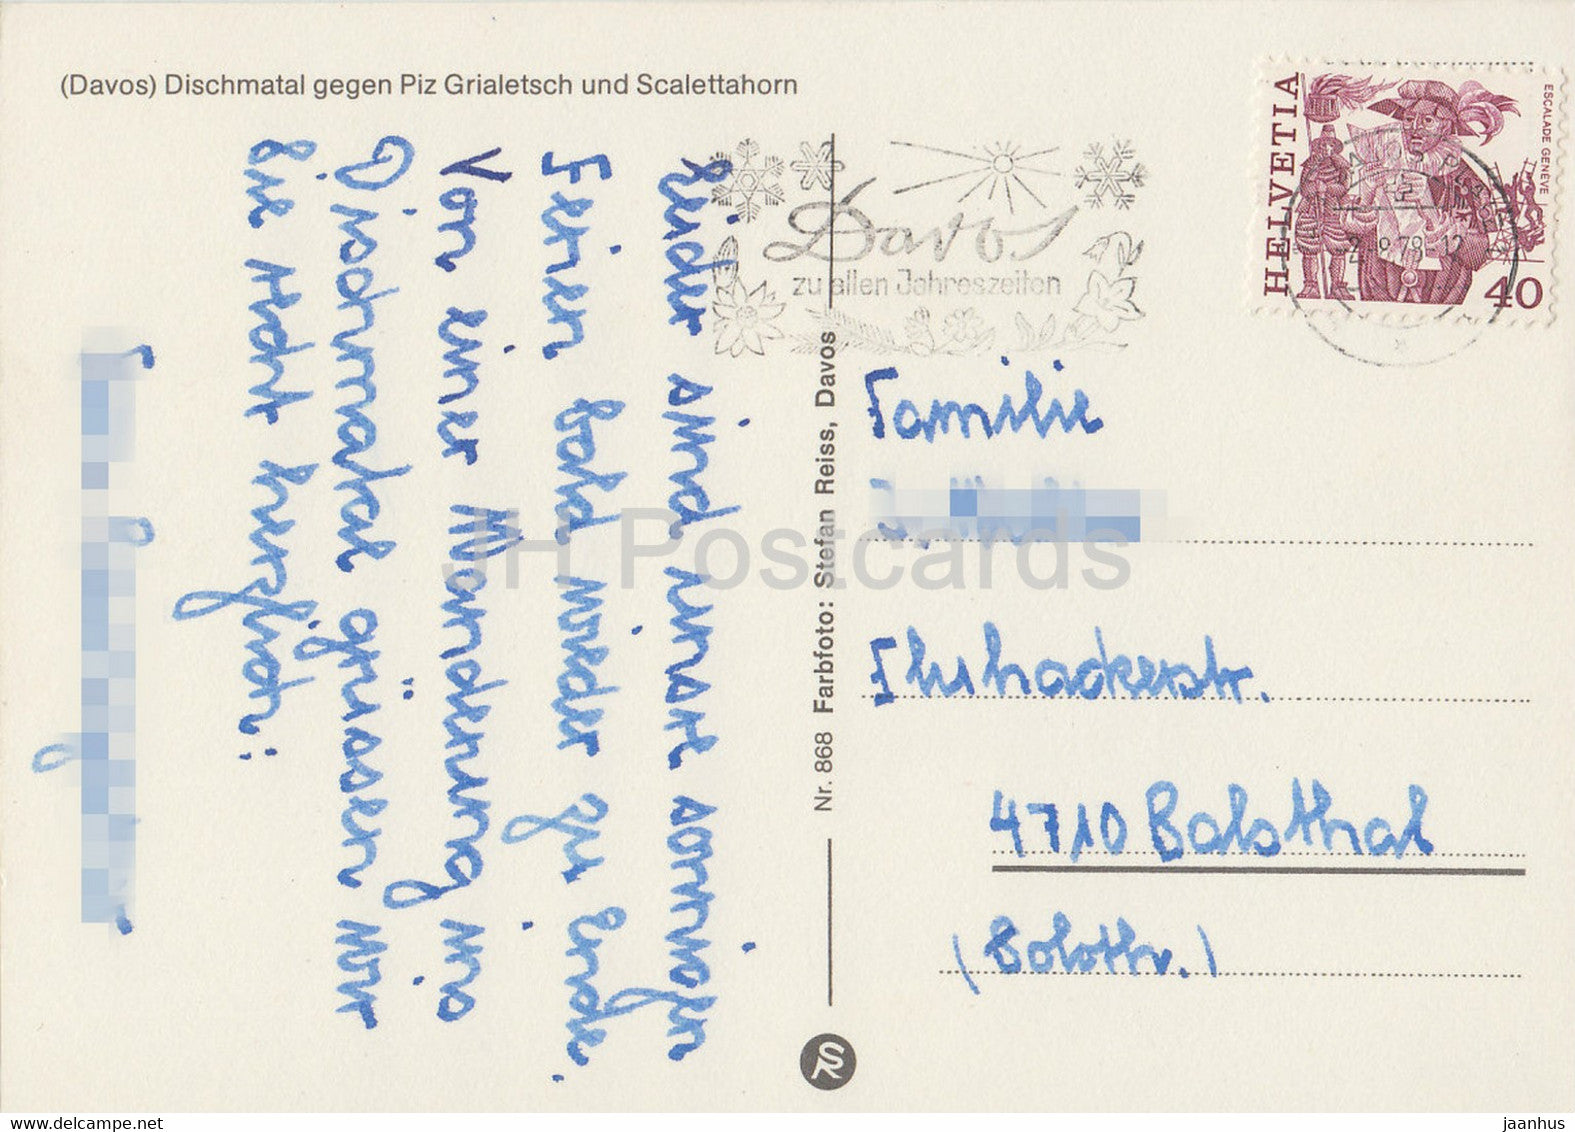 (Davos) Dischmatal gegen Piz Grialetsch und Scalettahorn
Leider sind unsre sonnigen
Ferien bald wieder zu Ende.
Von einer Wanderung ins
Dischmatal grüssen wir
Sie recht herzlich:
Nr. 868 Farbfoto: Stefan Reiss, Davos
SR
Davos
zu allen Jahreszeiten
HELVETIA
ESCALADE GENÈVE
40
Familie
Fluhackerstr.
4710 Balsthal
(Soloth.)
JH Postcards
www.delcampe.net
jaanhus